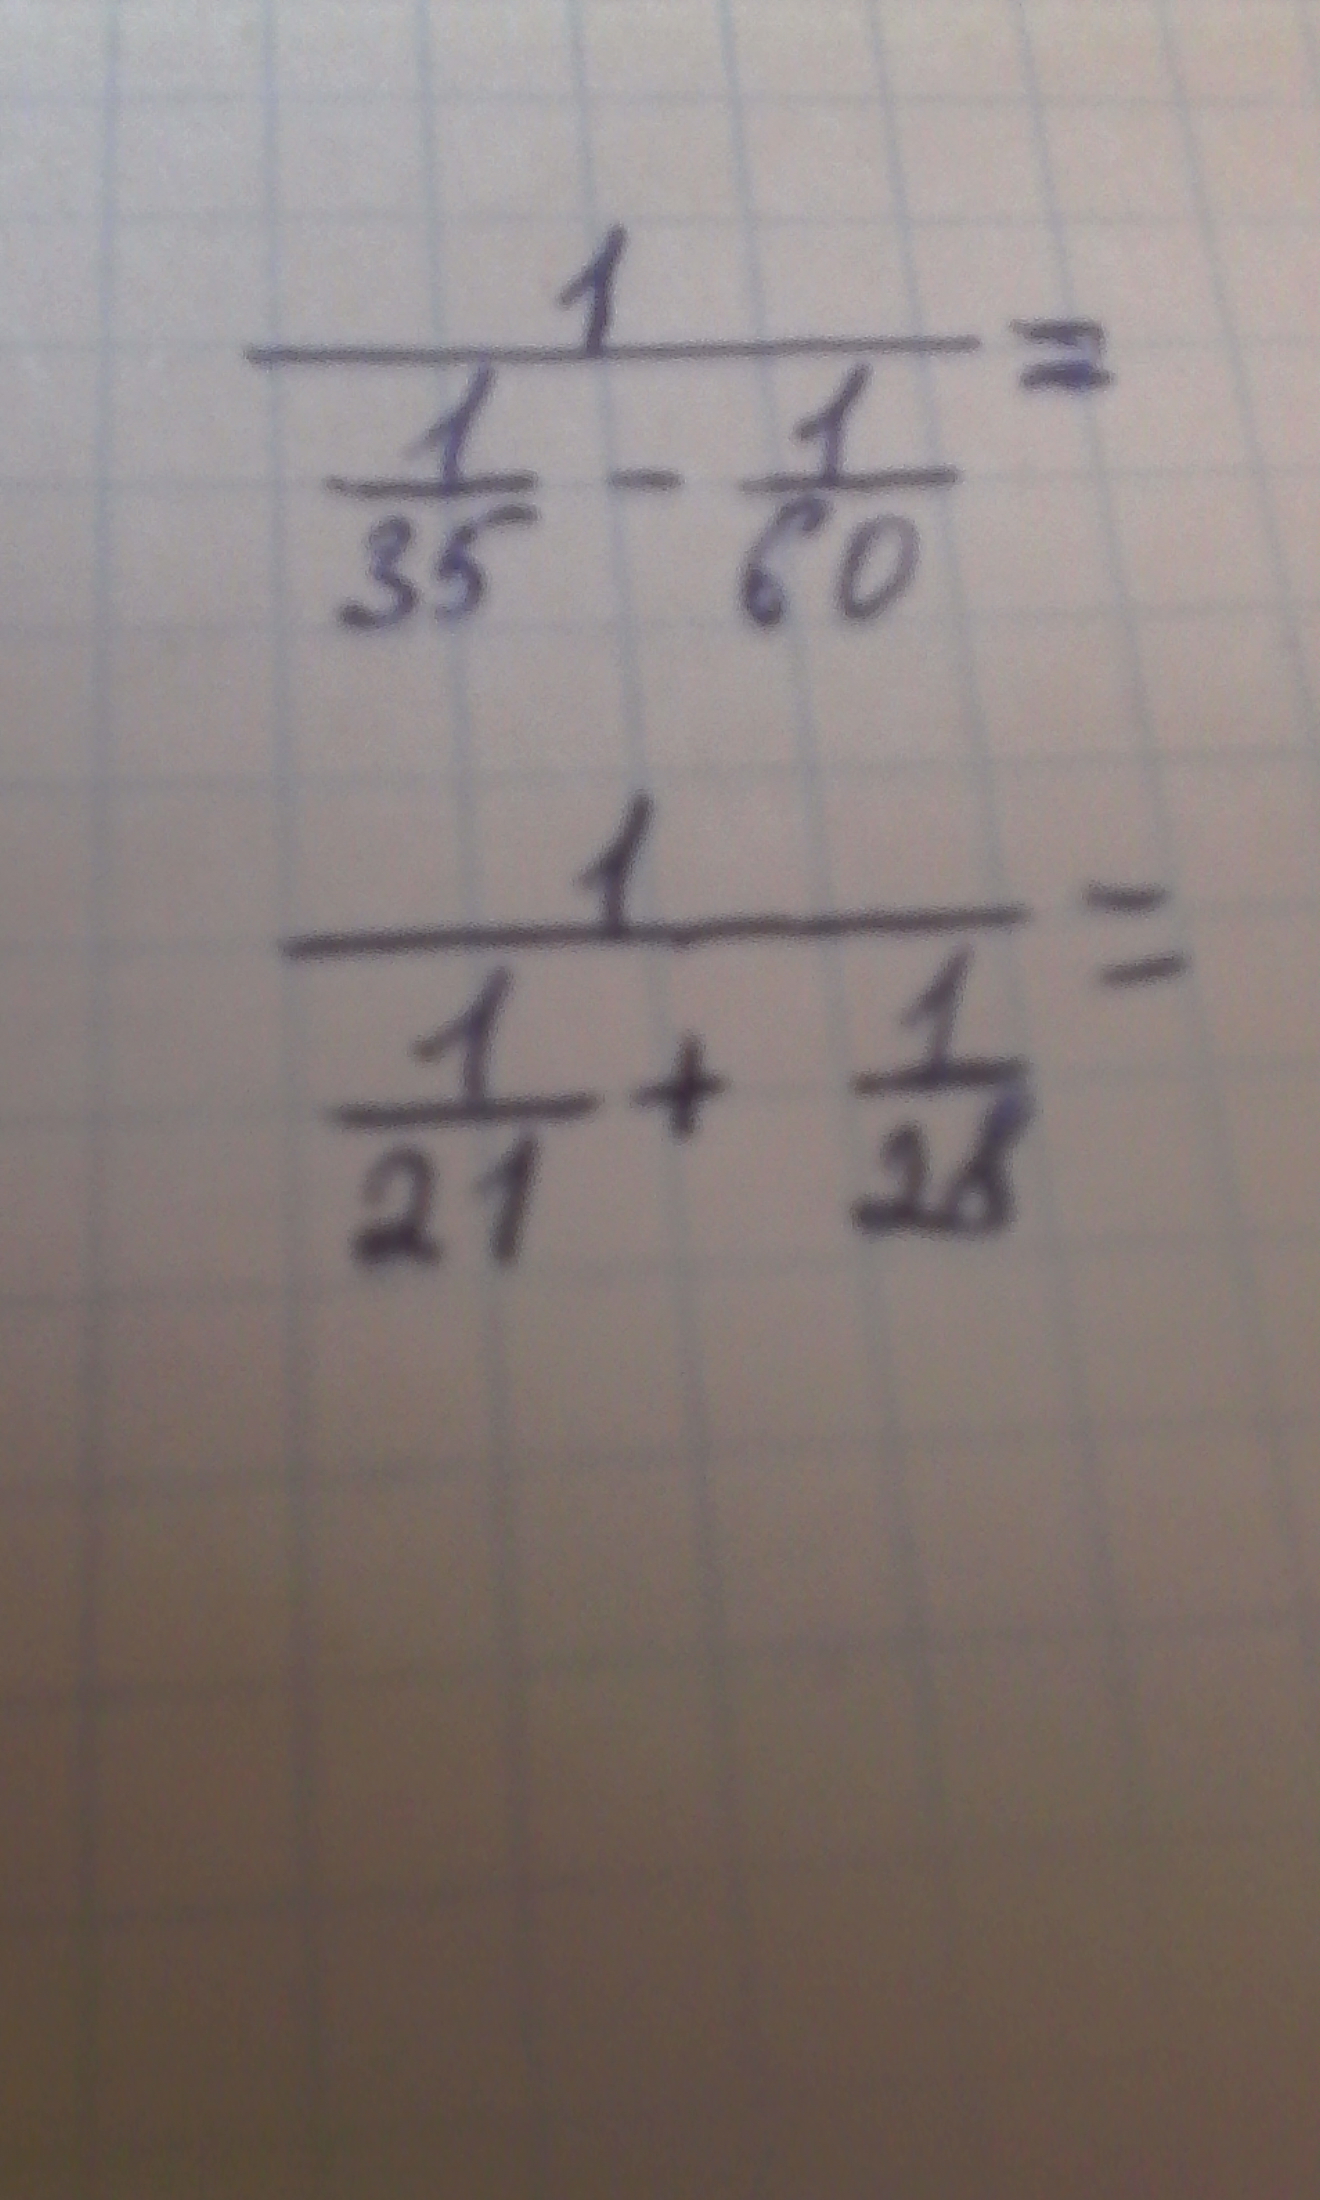 1
1/35 - 1/60 =
1
1/21 + 1/28 =